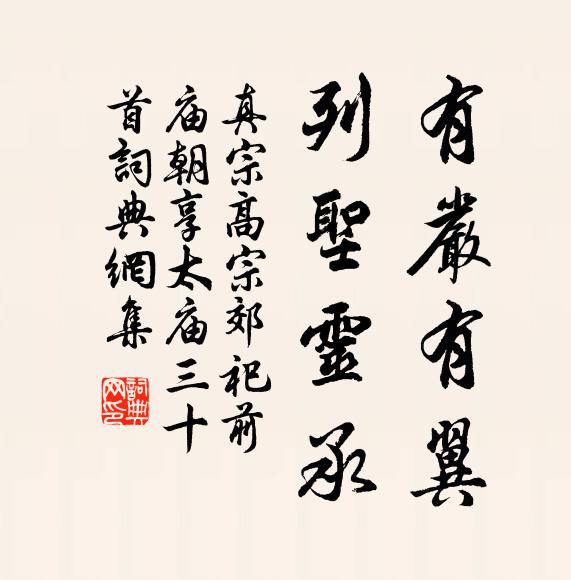 有嚴有翼
列聖靈承
真宗高宗郊祀前
庙朝享太庙三十
首詞典網集
詞典网印